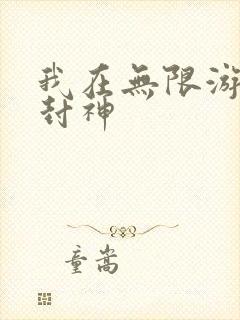 我在無限游
封神
童嵩